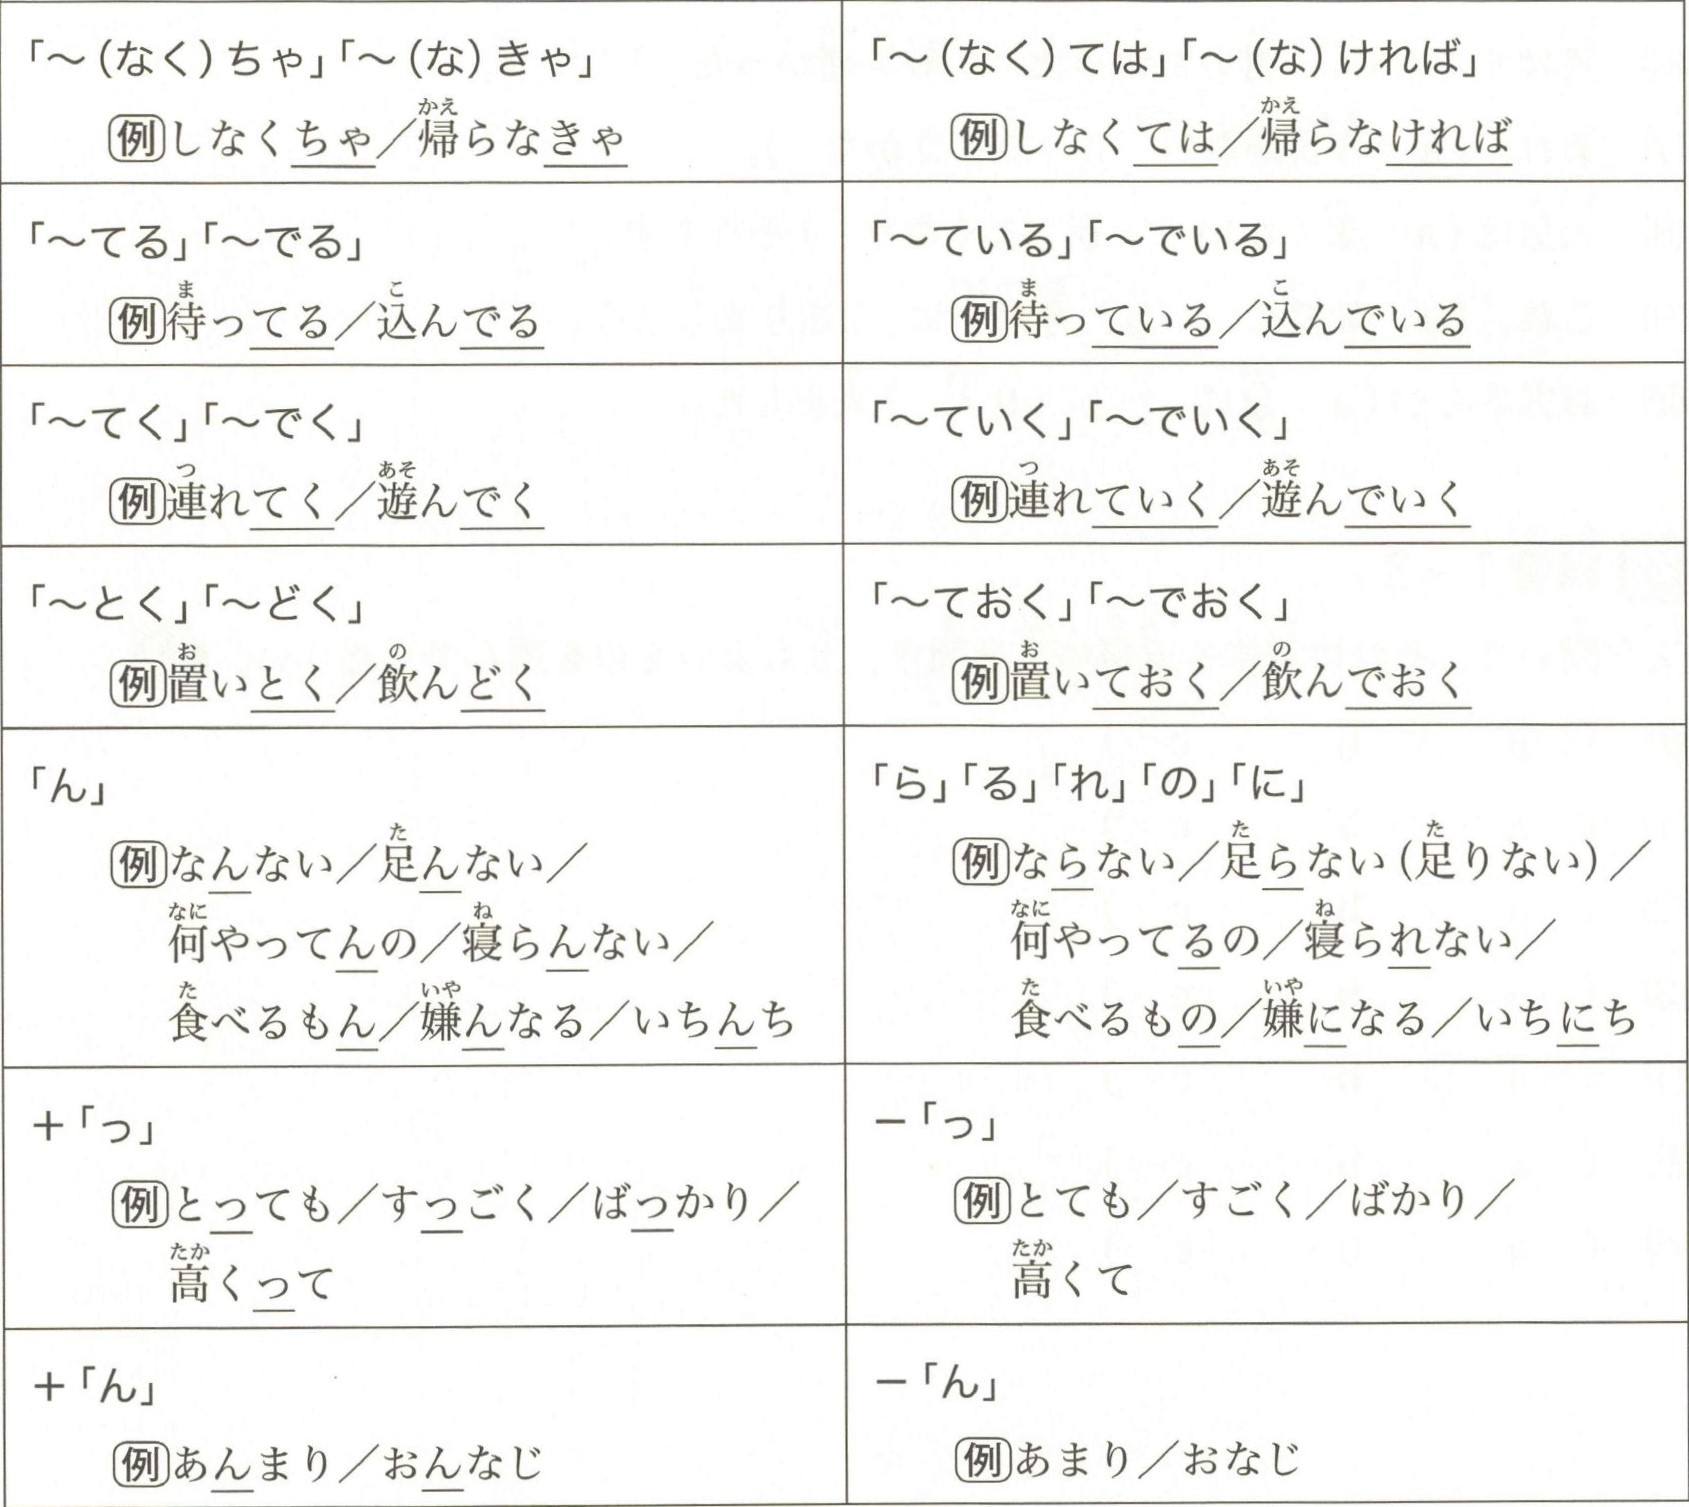 「～（なく）ちゃ」「～（な）きゃ」
かえ
例しなくちゃ／帰らなきゃ
「～（なく）ては」「～（な）ければ」
かえ
例しなくては／帰らなければ
「～てる」「～でる」
ま　こ
例待ってる／込んでる
「～ている」「～でいる」
ま　こ
例待っている／込んでいる
「～てく」「～でく」
つ　あそ
例連れてく／遊んでく
「～ていく」「～でいく」
つ　あそ
例連れていく／遊んでいく
「～とく」「～どく」
お　の
例置いとく／飲んどく
「～ておく」「～でおく」
お　の
例置いておく／飲んでおく
「ん」
た
例なんない／足んない／
なに　ね
何やってんの／寝らんない／
た　いや
食べるもん／嫌んなる／いちんち
「ら」「る」「れ」「の」「に」
た　た
例ならない／足らない（足りない）／
なに　ね
何やってるの／寝られない／
た　いや
食べるもの／嫌になる／いちにち
＋「っ」
例とっても／すっごく／ばっかり／
たか
高くって
－「っ」
例とても／すごく／ばかり／
たか
高くて
＋「ん」
例あんまり／おんなじ
－「ん」
例あまり／おなじ